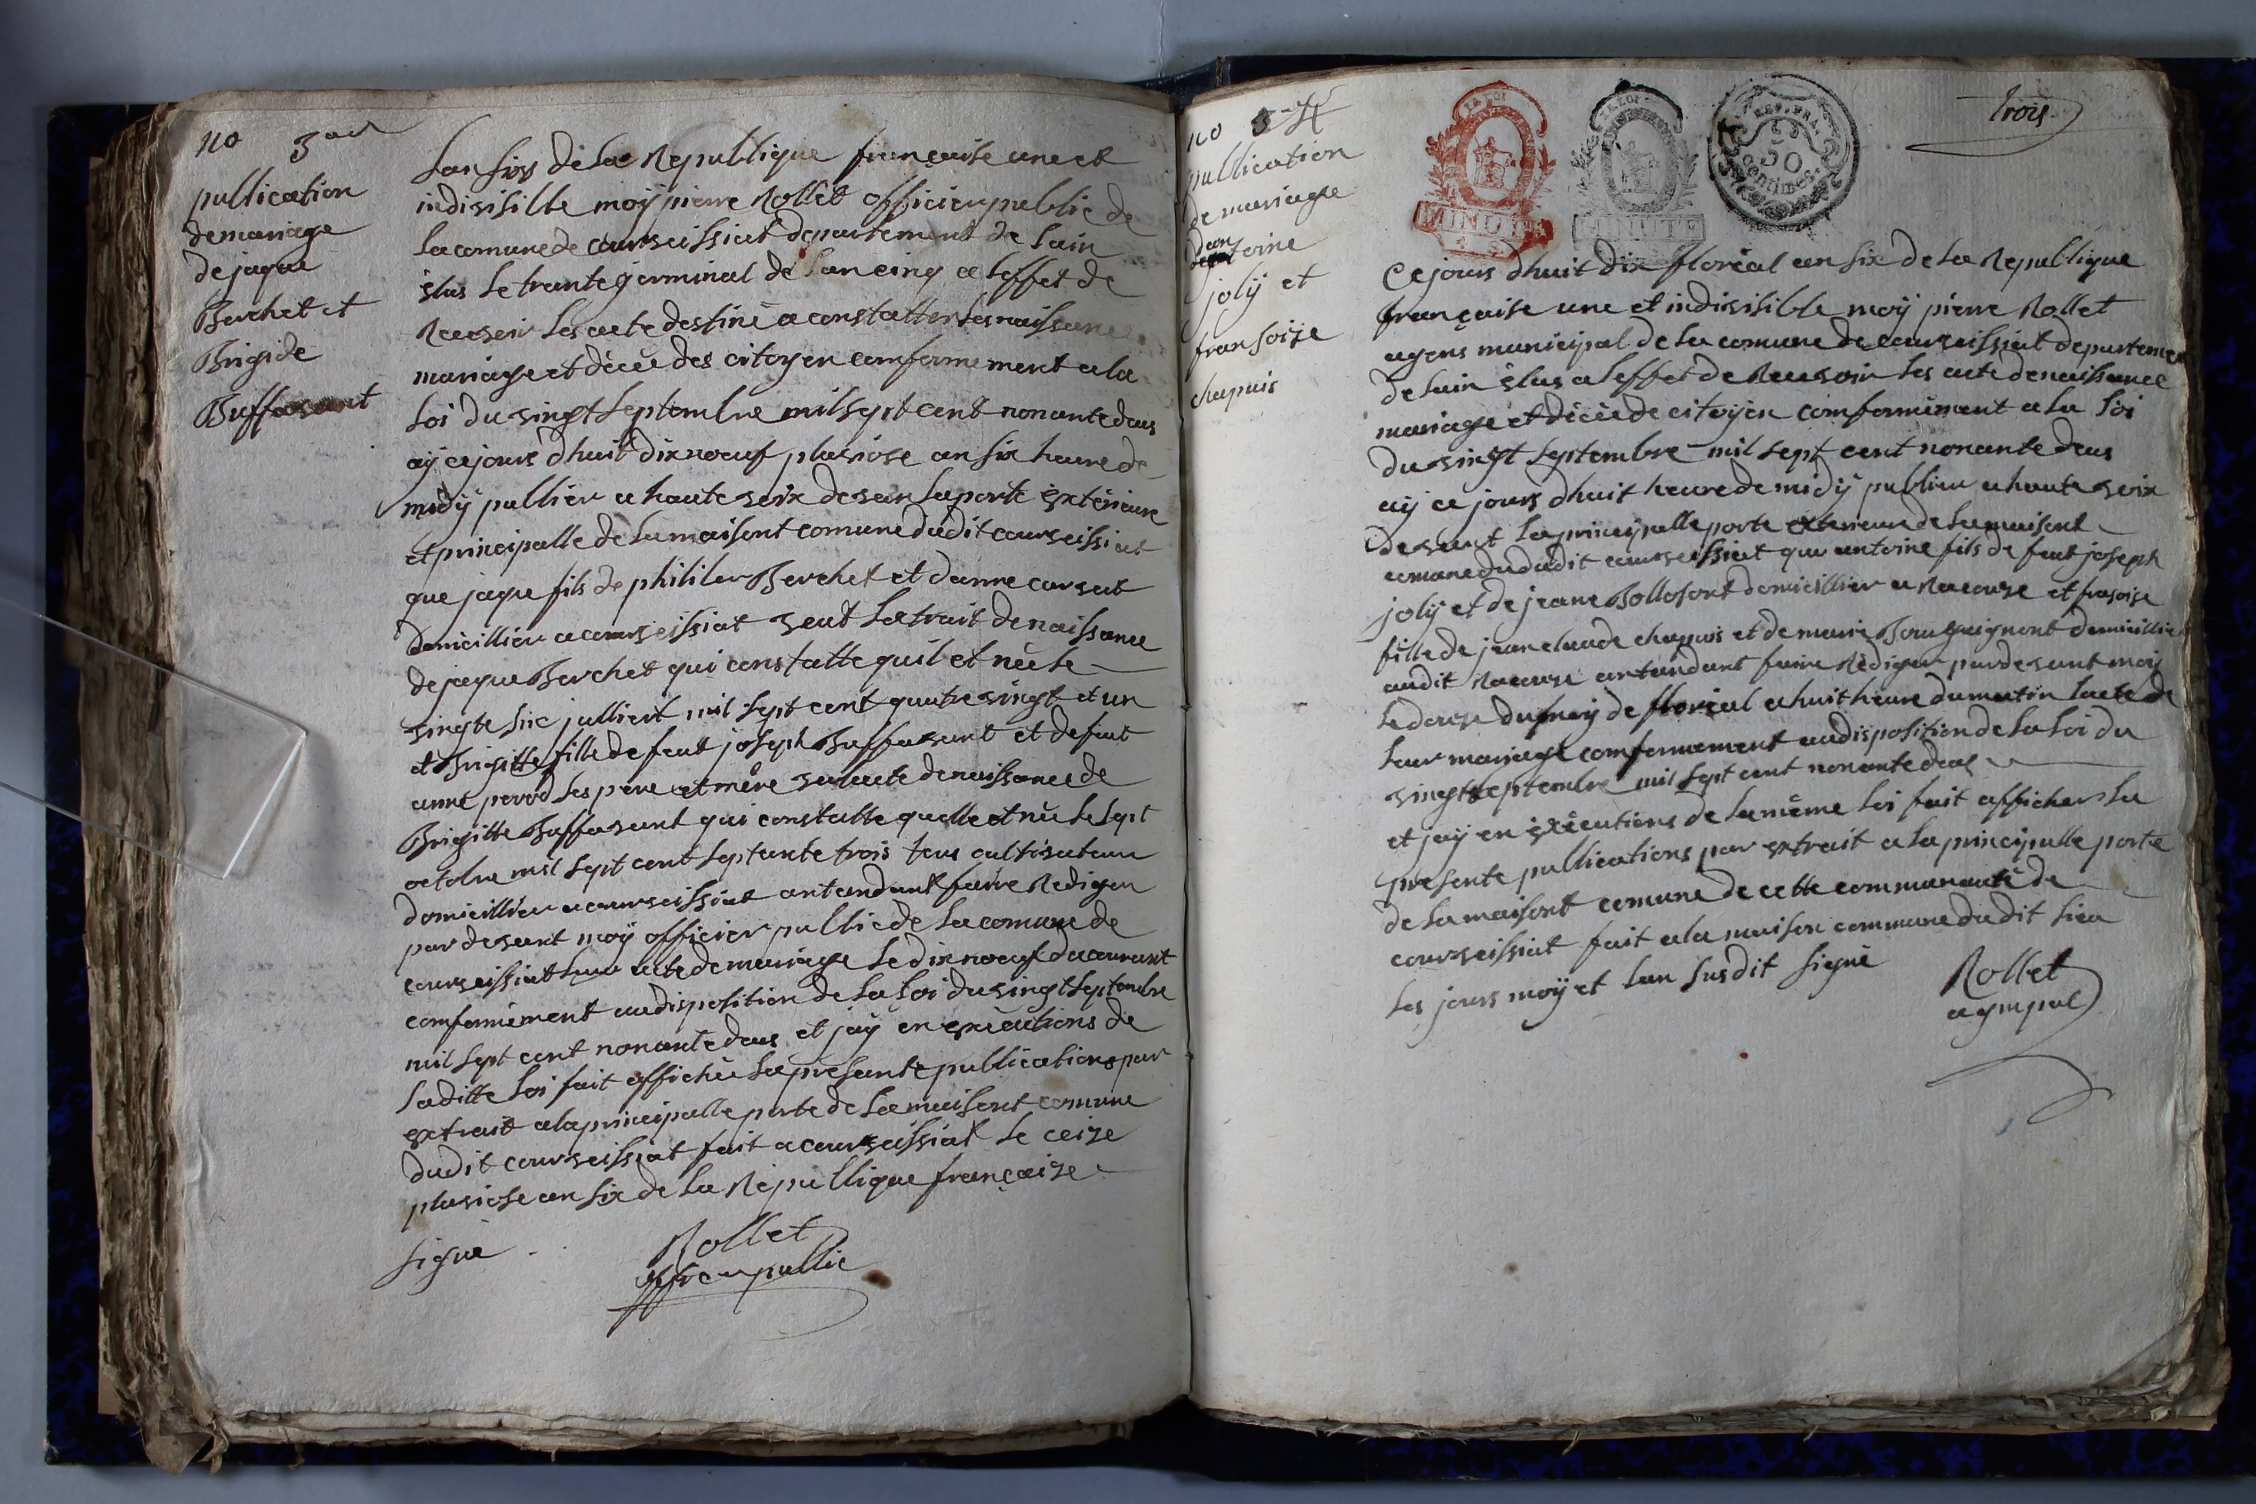 no 3
publication
de mariage
de jaque
Berchet et
Brigide
Buffavant
Lan six de la Republique française une et
indivisille moÿ pierre Rollet officier public de
la comune de courveissiat departement de lain
élus le trante germinal de lan cinq a leffet de
Recevoir les acte destiné a constatter les naissance
mariage et décée des citoyen conformement a la
loi du vingt septembre mil sept cent nonante deus
aÿ cejours dhuit dix noeuf pluviose an six heure de
midÿ publier a haute voix devan la porte extérieure
et principalle de la maisont comune dudit courveissiat
que jaque fils de philiber Berchet et danne carvat
domicillier a courveissiat veut lextrait de naissance
de jaque Berchet qui constatte quil et née le
vingte six julliert mil sept cent quatre vingt et un
et Brigitte fille de feut joseph Buffavant et de feut
anne perrod ses pere et mère vu lacte de naissance de
Brigitte Buffavant qui constatte quelle et née le sept
octobre mil sept cent septante trois tous cultivateur
domicillier a courveissiat antandant faire Rediger
par devant moÿ officier public de la comune de
courveissiat leur acte de mariage le dix noeuf du courant
conformément audisposition de la loi du vingt septembre
mil sept cent nonante deus et jaÿ en exécutions de
laditte loi fait affichée la présante publications par
extrait a la principalle porte de la maisont comune
dudit courveissiat fait a courveissiat le ceize
pluviose an six de la Républlique françaize
signé
Rollet
offier public
no 4
publication
de mariage
dan
toine
jolÿ et
fransoize
chapuis
LA LOI
MINUTE
LA LOI
MINUTE
REP. FRA.
50
centimes.
trois
Cejours dhuit dix floréal an six de la Republique
française une et indivisible moÿ pierre Rollet
agens municipal de la comune de courveissiat departemen
de lain élus a leffet de Recevoir les acte de naissance
mariage et décée de citoÿen comformément a la loi
du vingt septembre mil sept cent nonante deus
aÿ ce jours dhuit heure de midÿ publier a haute voix
devant la principalle porte exterieure de la maisont
comune dudit courveissiat que antoine fils de feut joseph
jolÿ et de jeane Bollofont domicillier a Racouse et fransoise
fille de jean claude chapuis et de marie Bourguignont domicillier
audit Racouse antandant faire Rédiger par devant moÿ
le douze du moÿ de floréal a huit heure du matin lacte de
leur mariage comformement audisposition de la loi du
vingt septembre mil sept cent nonante deus
et jaÿ en exécutions de la même loi fait afficher la
présente publications par extrait a la principalle porte
de la maisont comune de cette communauté de
courveissiat fait a la maison commune dudit lieu
les jours moÿ et lan susdit signé
Rollet
agmpal